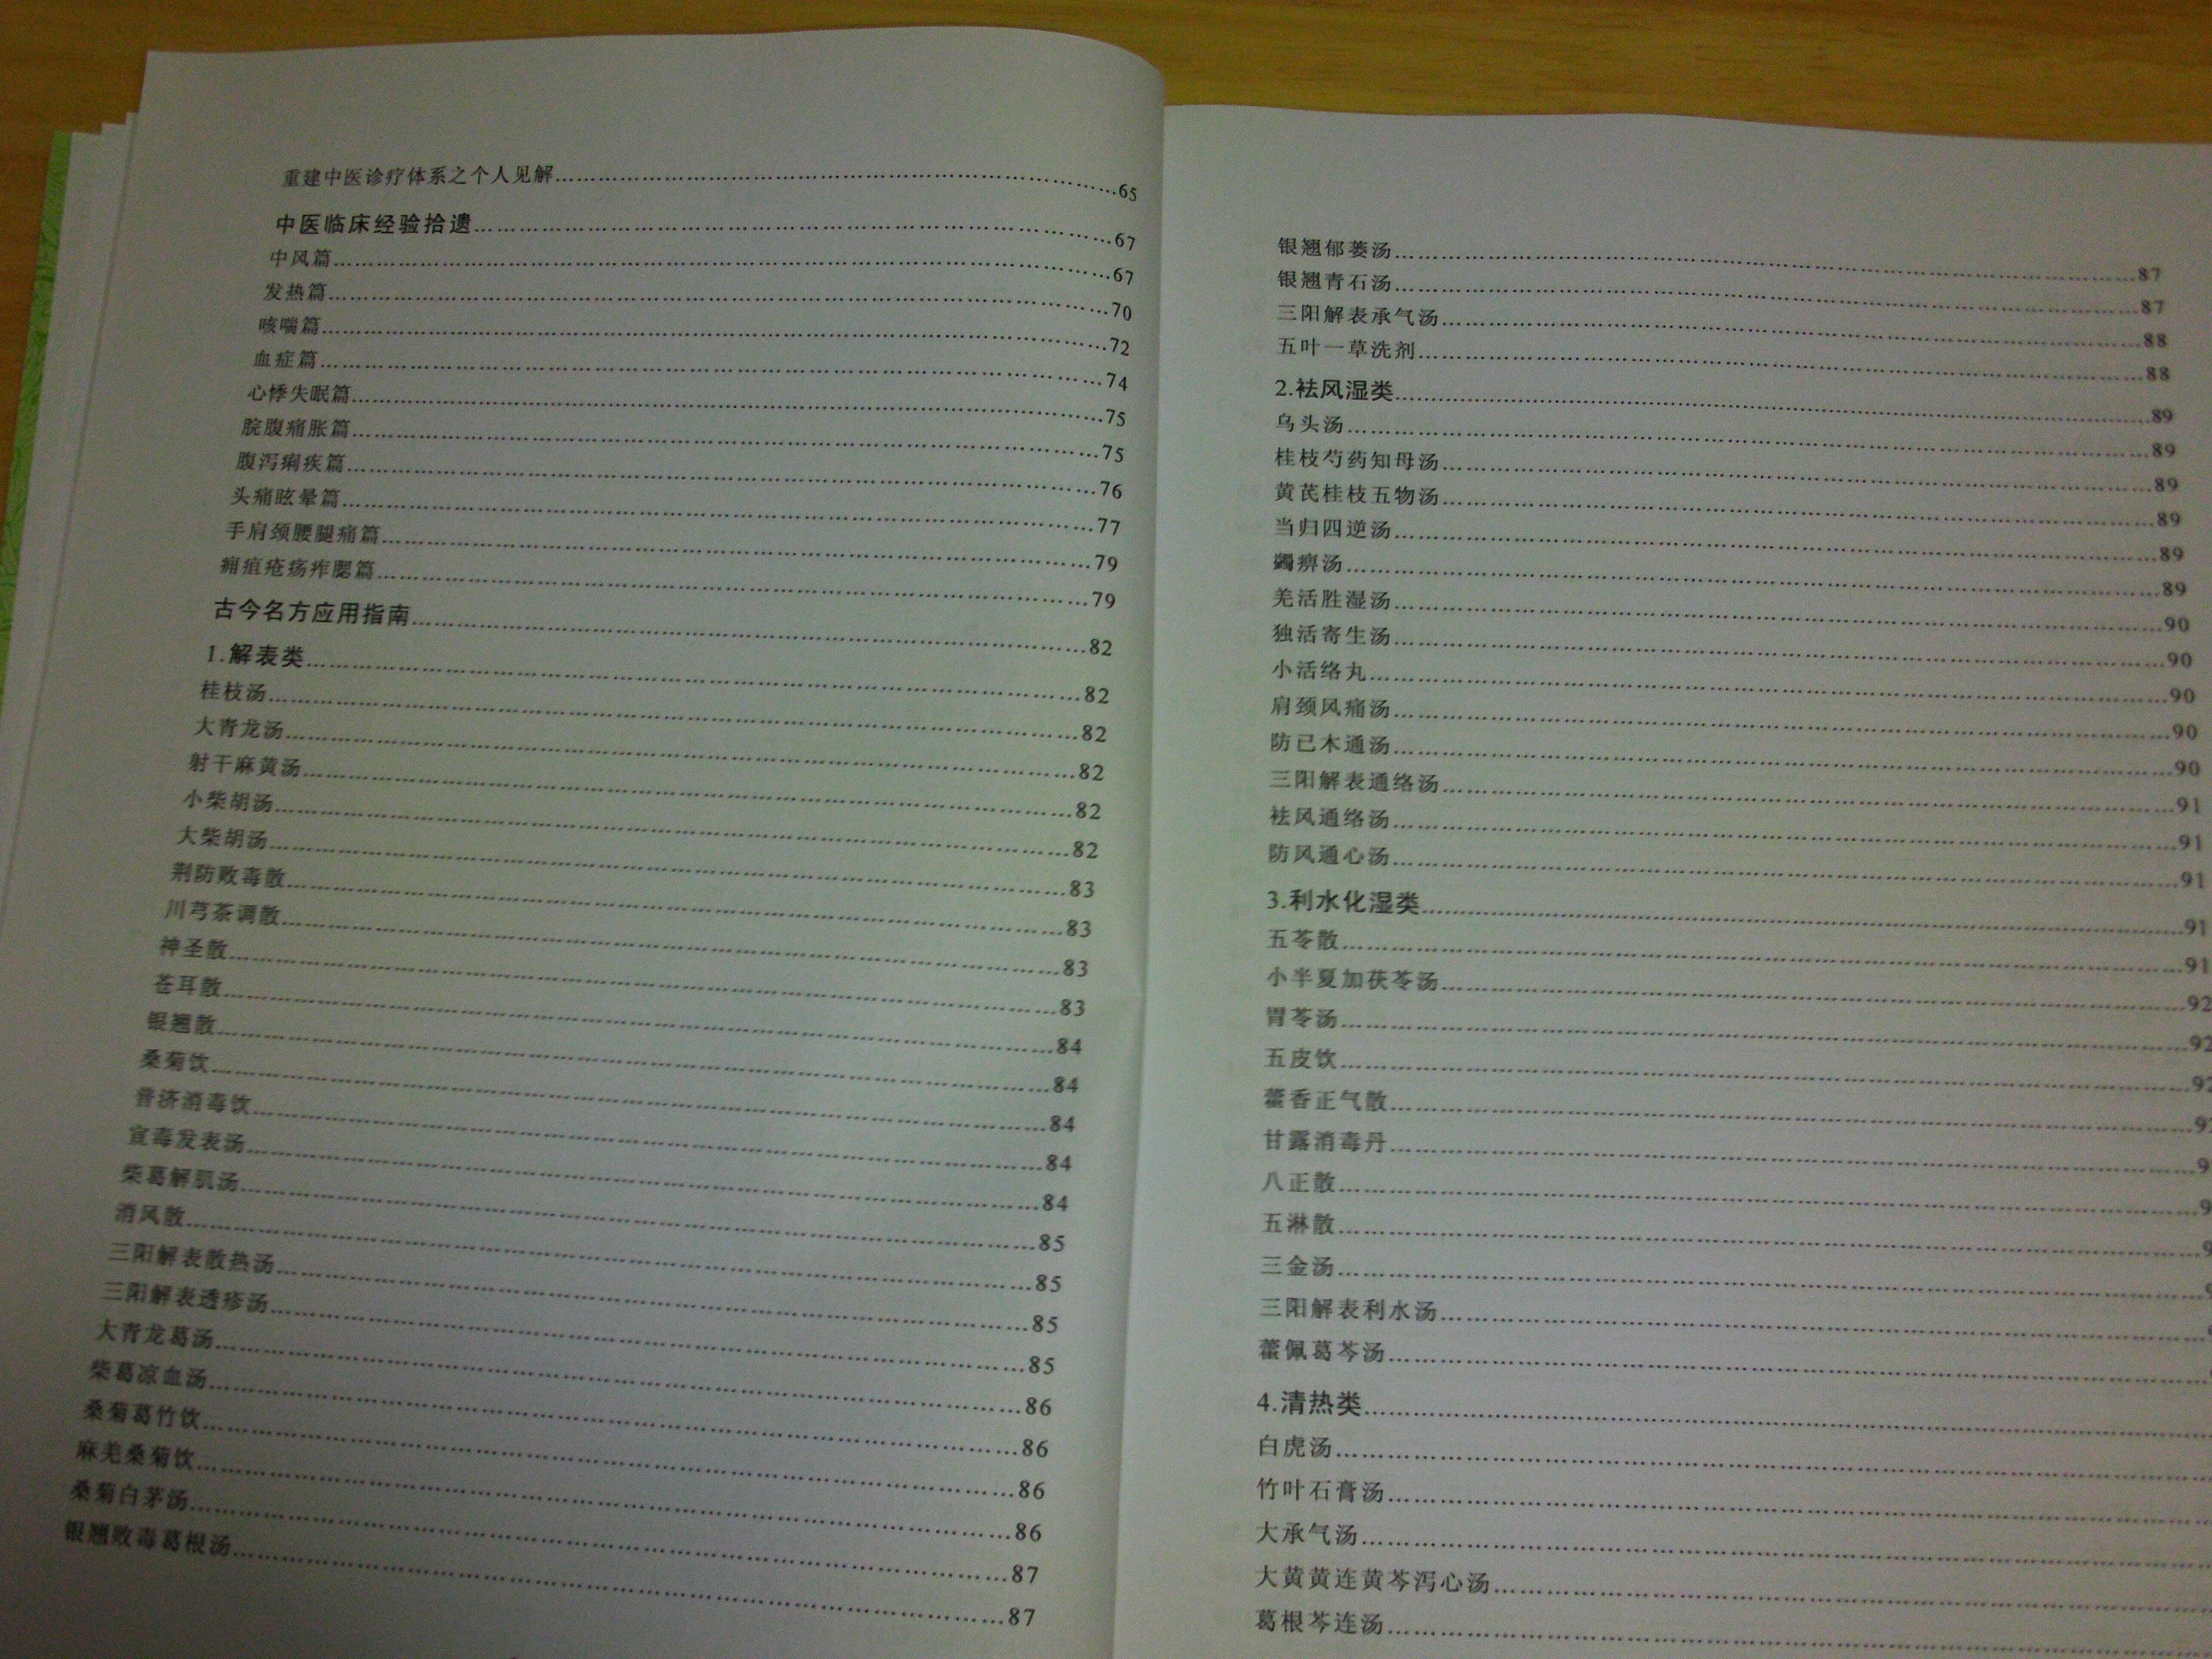 重建中医诊疗体系之个人见解……65
中医临床经验拾遗……67
中风篇……67
发热篇……70
咳喘篇……72
血症篇……74
心悸失眠篇……75
脘腹痛胀篇……75
腹泻痢疾篇……76
头痛眩晕篇……77
手肩颈腰腿痛篇……79
痈疽疮疡痄腮篇……79
古今名方应用指南……82
1.解表类……82
桂枝汤……82
大青龙汤……82
射干麻黄汤……82
小柴胡汤……82
大柴胡汤……83
荆防败毒散……83
川芎茶调散……83
神圣散……83
苍耳散……84
银翘散……84
桑菊饮……84
普济消毒饮……84
宣毒发表汤……84
柴葛解肌汤……85
消风散……85
三阳解表散热汤……85
三阳解表透疹汤……85
大青龙葛汤……86
柴葛凉血汤……86
桑菊葛竹饮……86
麻羌桑菊饮……86
桑菊白茅汤……87
银翘败毒葛根汤……87
银翘郁蒌汤……87
银翘青石汤……87
三阳解表承气汤……88
五叶一草洗剂……88
2.祛风湿类……89
乌头汤……89
桂枝芍药知母汤……89
黄芪桂枝五物汤……89
当归四逆汤……89
蠲痹汤……89
羌活胜湿汤……90
独活寄生汤……90
小活络丸……90
肩颈风痛汤……90
防己木通汤……90
三阳解表通络汤……91
祛风通络汤……91
防风通心汤……91
3.利水化湿类……91
五苓散……91
小半夏加茯苓汤……92
胃苓汤……92
五皮饮……92
藿香正气散……
甘露消毒丹……
八正散……
五淋散……
三金汤……
三阳解表利水汤……
藿佩葛芩汤……
4.清热类……
白虎汤……
竹叶石膏汤……
大承气汤……
大黄黄连黄芩泻心汤……
葛根芩连汤……